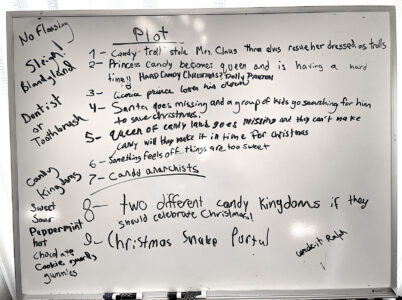 Plot
No Flossing
Sleigh!
Candyland
Dentist
or
Toothbrush
Candy
Kingdoms
Sweet
Sour
Peppermint
hot
chocolate
Cookie
gummies
1 - Candy troll stole Mrs. Claus three elves rescue her dressed as trolls
2 - Princess Candy becomes queen and is having a hard
time!! Hard Candy Christmas? Dolly Parton
3 - licorice prince
4 - Santa goes missing and a group of kids go searching for him
to save christmas.
5 - Queen of candy land goes missing and they can't make
candy will they make it in time for christmas
6 - Something feels off things are too sweet
7 - Candy anarchists
8 - two different candy Kingdoms if they
should celebrate Christmas!
9 - Christmas Snake Portal
wreck it Ralph